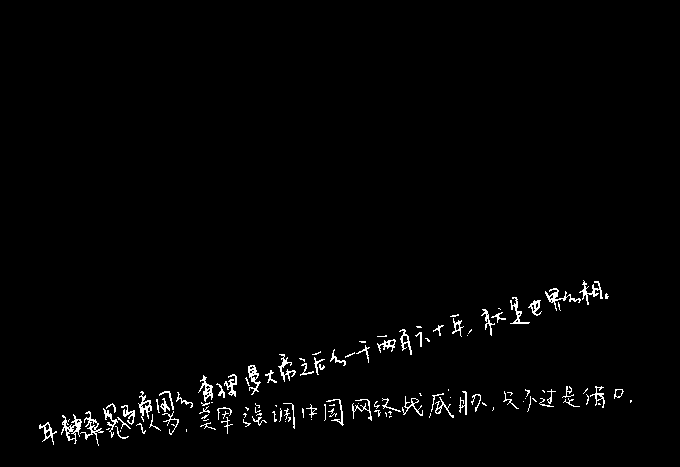 罗马帝国的查理曼大帝之后的一千两百六十年,就是世界的相。
认为,美军强调中国网络战威胁,只不过是借口.